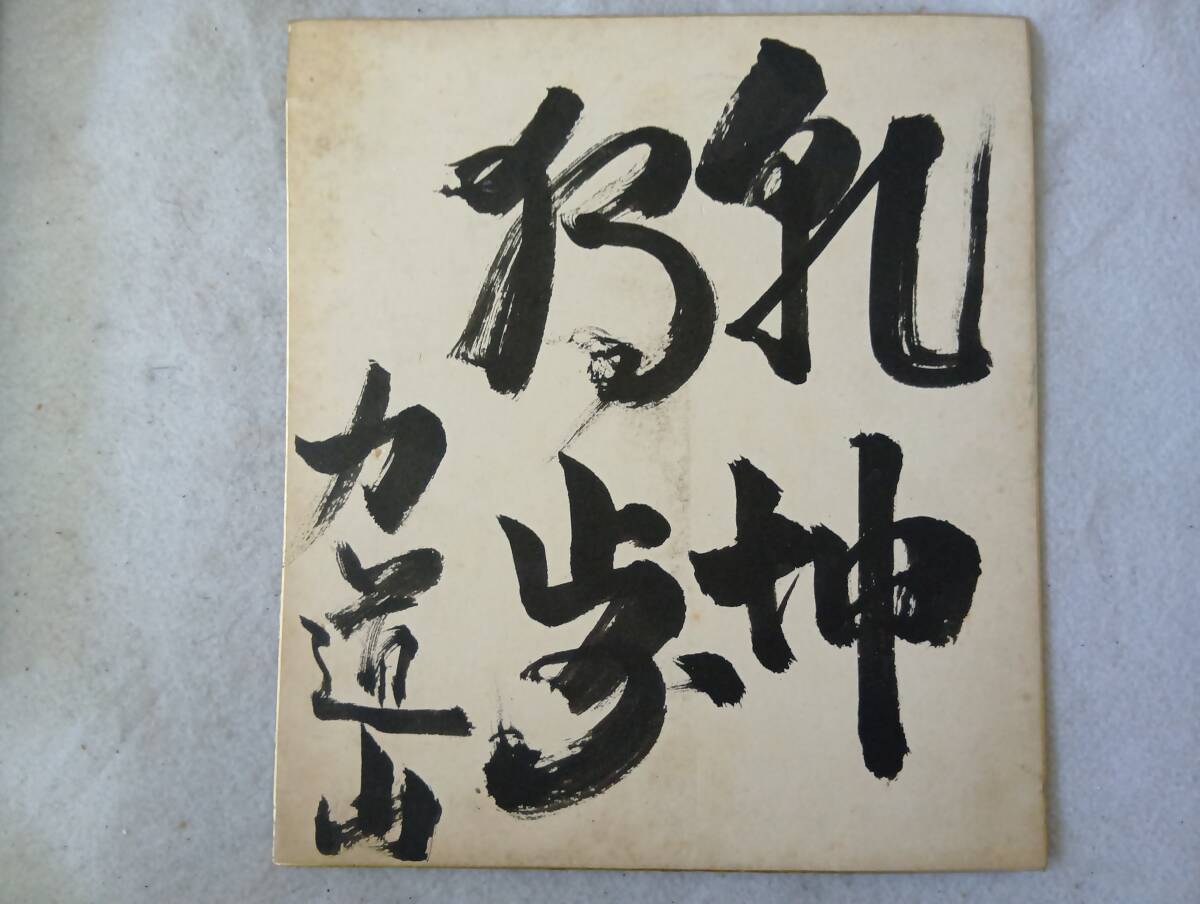 乾坤
独歩
力道山